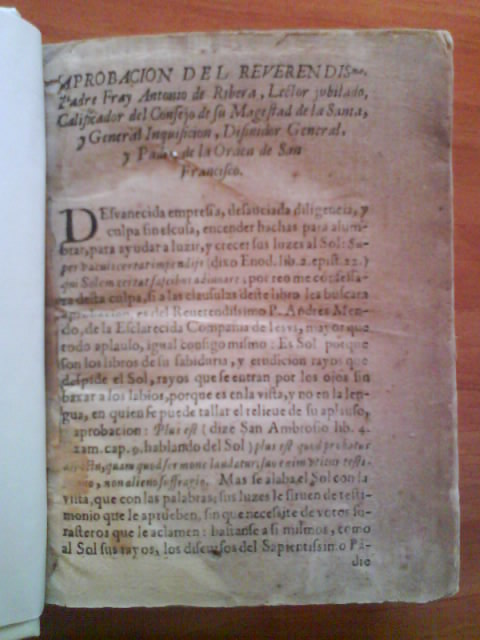 APROBACION DEL REVERENDISmo.
Padre Fray Antonio de Ribera, Lector jubilado,
Calificador del Consejo de su Magestad de la Santa,
y General Inquisicion, Difinidor General,
y Padre de la Orden de San
Francisco.
DEsvanecida empressa, desauciada diligencia, y
culpa sin escusa, encender hachas para alum-
brar, para ayudar a luzir, y crecer sus luzes al Sol: Su-
per vacui certat impendijs (dixo Enod. lib. 2. epist. 22.)
qui Solem certat facibus adiuuare, por reo me confessa-
ra desta culpa, si a las clausulas deste libro les buscara
aprobacion, es del Reverendissimo P. Andrès Men-
do, de la Esclarecida Compañia de Iesus, mayor que
todo aplauso, igual consigo mismo: Es Sol porque
son los libros de su sabiduria, y erudicion rayos que
despide el Sol, rayos que se entran por los ojos sin
baxar a los labios, porque es en la vista, y no en la len-
gua, en quien se puede tallar el relieve de su aplauso,
aprobacion: Plus est (dize San Ambrosio lib. 4.
exam. cap. 9. hablando del Sol) plus est quod probatur
aspectu, quam quod sermone laudatur, suo enim utitur testi-
nio, non alieno suffragio. Mas se alaba el Sol con la
vista, que con las palabras; sus luzes le siruen de testi-
monio que le aprueben, sin que necessite de votos fo-
rasteros que le aclamen: bastanse a si mismos, como
al Sol sus rayos, los discursos del Sapientissimo Pa-
dre